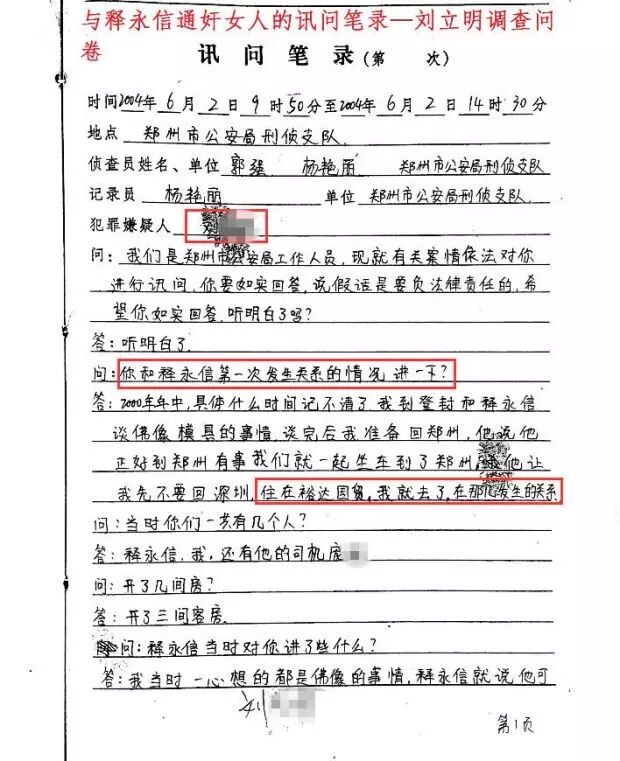 与释永信通奸女人的讯问笔录—刘立明调查问
卷
讯问笔录(第 次)
时间2004年6月2日9时50分至2004年6月2日14时30分
地点 郑州市公安局刑侦支队
侦查员姓名、单位 郭强 杨艳丽 郑州市公安局刑侦支队
记录员 杨艳丽 单位 郑州市公安局刑侦支队
犯罪嫌疑人 刘
问:我们是郑州市公安局工作人员,现就有关案情依法对你
进行讯问,你要如实回答,说假话是要负法律责任的,希
望你如实回答,听明白了吗?
答:听明白了.
问:你和释永信第一次发生关系的情况讲一下?
答:2000年年中,具体什么时间记不清了我到登封和释永信
谈佛像模具的事情,谈完后我准备回郑州,他说他
正好到郑州有事我们就一起坐车到了郑州,他让
我先不要回深圳,住在裕达国贸,我就去了,在那儿发生的关系
问:当时你们一共有几个人?
答:释永信,我,还有他的司机庞
问:开了几间房?
答:开了三间客房.
问:释永信当时对你讲了些什么?
答:我当时一心想的都是佛像的事情,释永信就说他可
刘
第1页